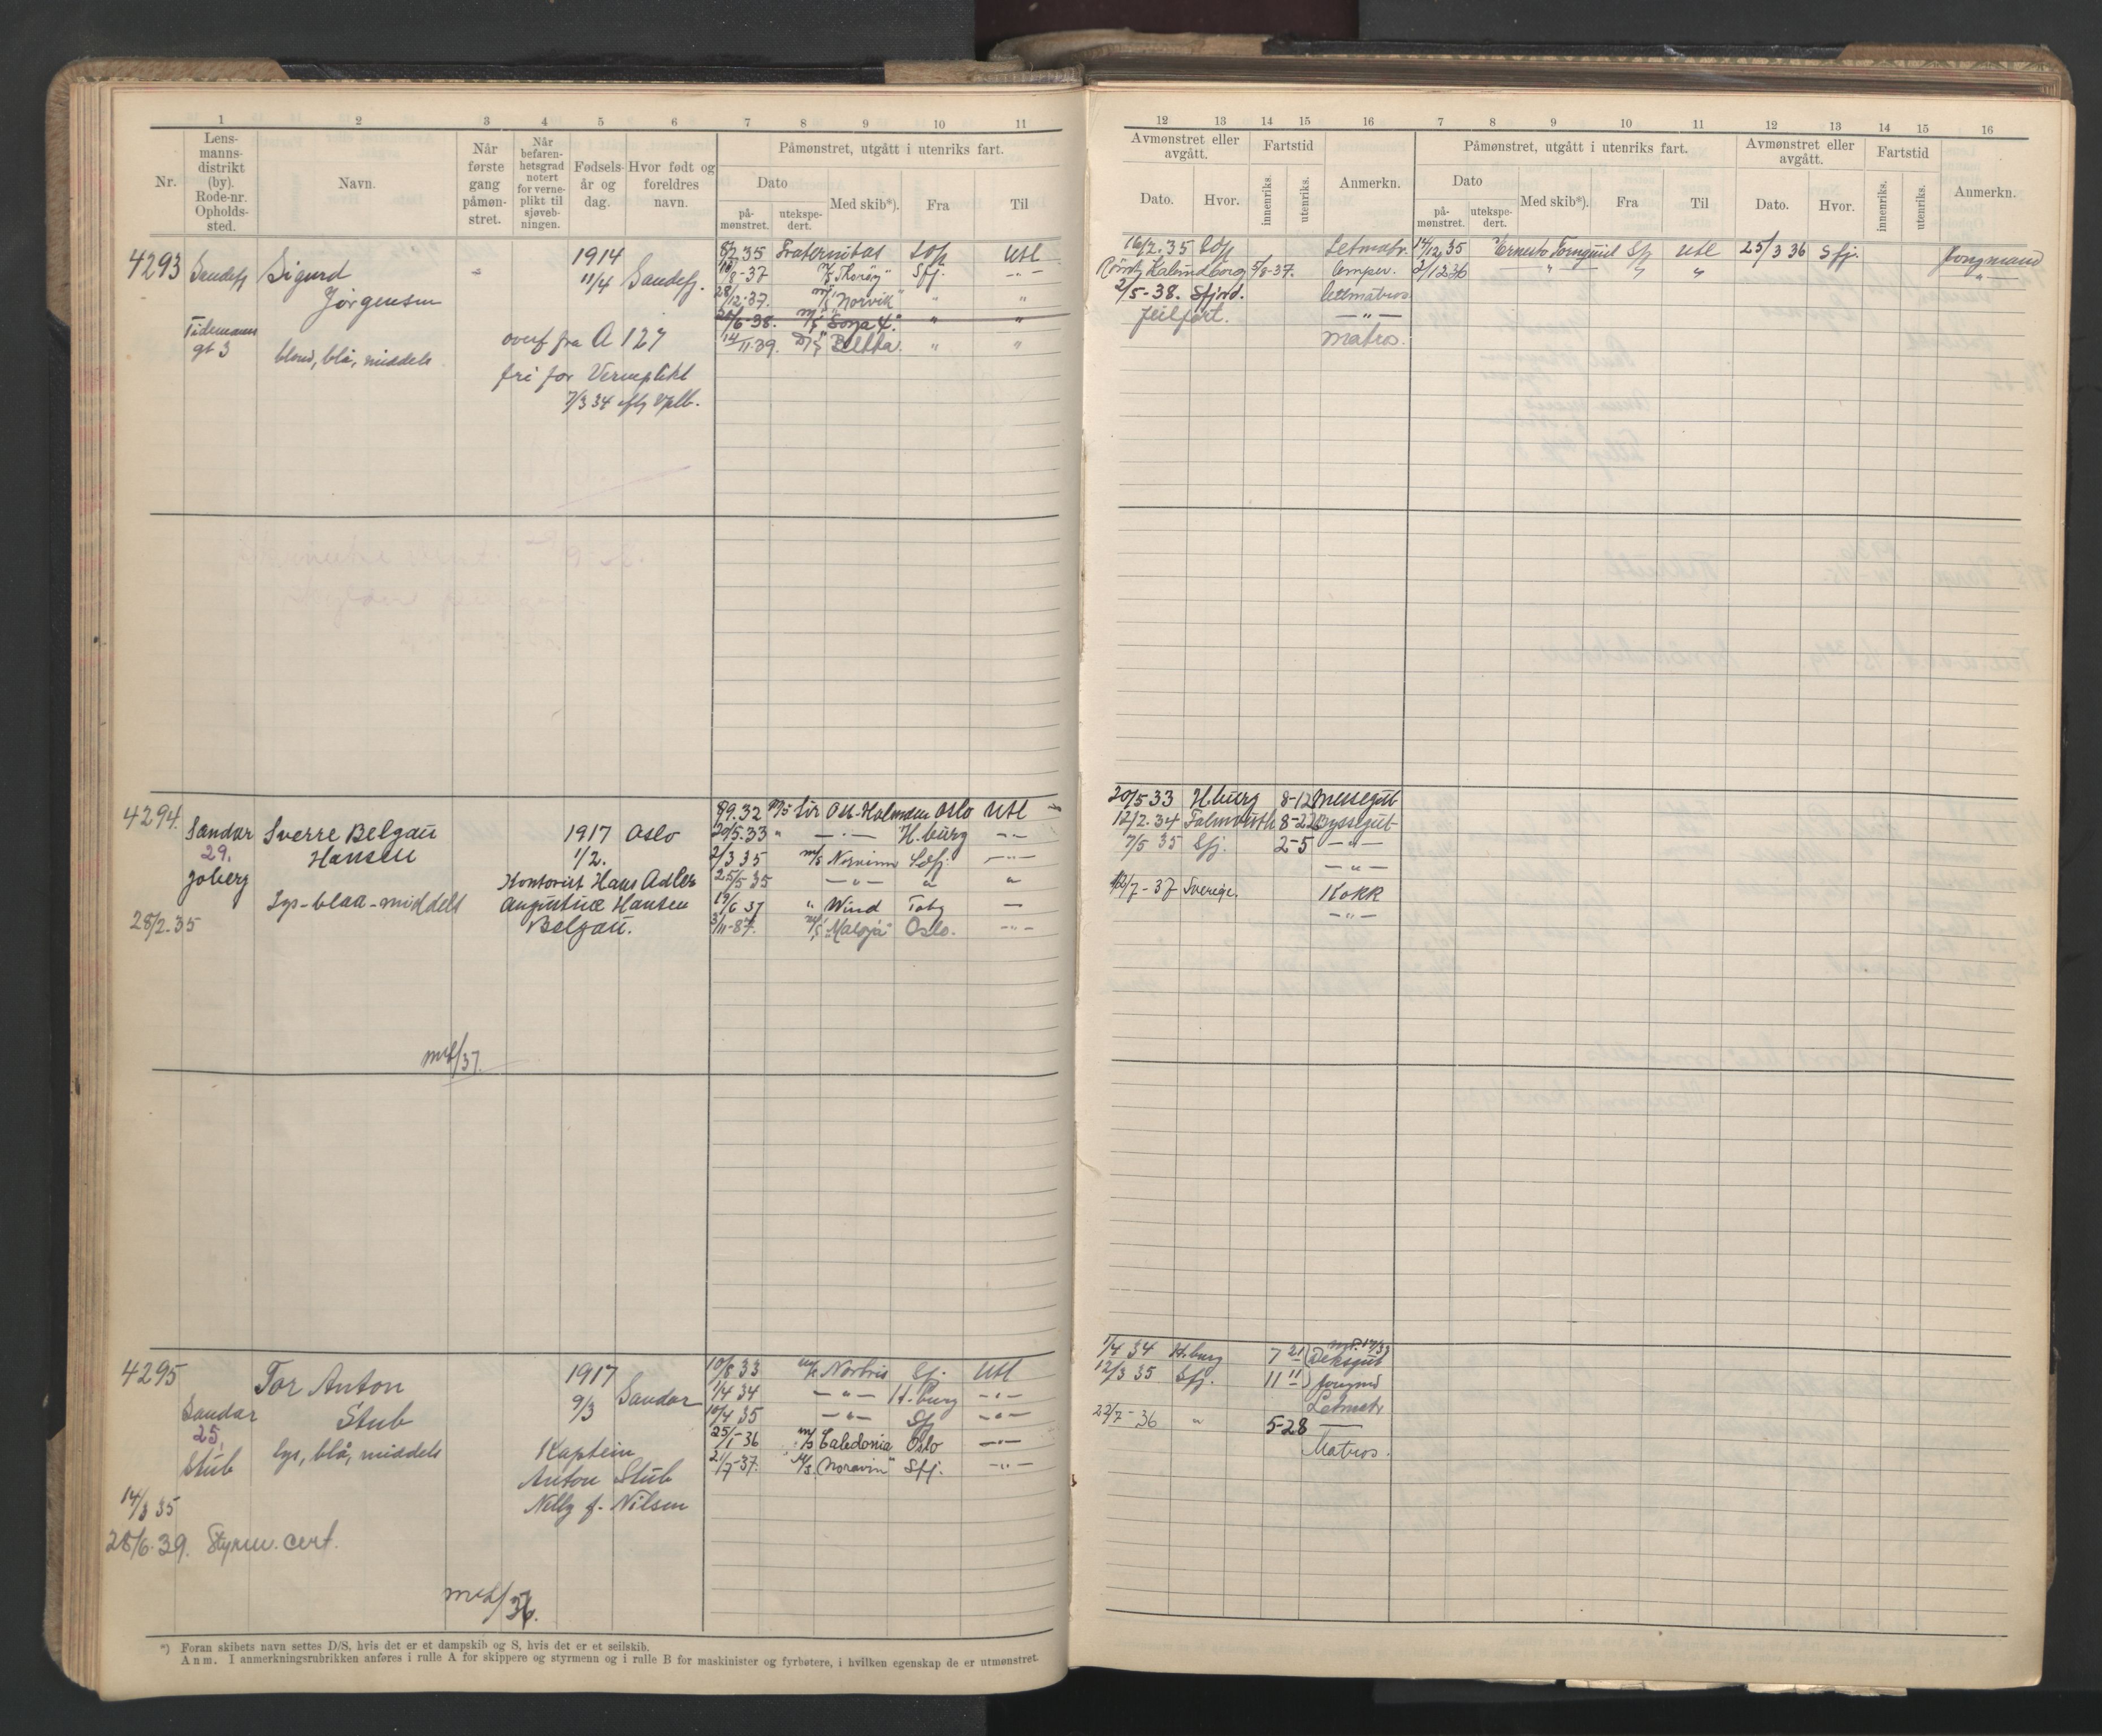 1 2 3 4 5 6 7 8 9 10 11
Nr.
Lens-
manns-
distrikt
(by).
Rode-nr.
Opholds-
sted.
Navn.
Når
første
gang
påmøn-
stret.
Når
befaren-
hetsgrad
notert
for verne-
plikt til
sjøveb-
ningen.
Fødsels-
år og
dag.
Hvor født og
foreldres
navn.
Påmønstret, utgått i utenriks fart.
Dato
på-
mønstret.
utekspe-
dert.
Med skib*).
Fra
Til
4293 Sandefj Sigurd
Jørgensen
Tidemanns
gt 3
blond, blå, middels
1914
11/4 Sandefj.
overf fra A 127
fri for Verneplikt
7/3 34
8/2.35 Fraternitas Utl
/8-37 "Thorøy" Sfj. -"-
28/12-37. "Norvik" " "
/6-38. "Sonja 4." " "
14/11.39. D/S " "
4294. Sandar Sverre Belgau
29. Hansen
Joberg
28/2.35
Lys-blaa-middels
1917 Oslo
1/2.
Kontorist Hans Adler
Augustine Hansen
Belgau.
mrk/37.
8/9.32 M/S Oslo Utl
20/5.33 " -"- H.burg -"-
2/3 35 M/S -"-
25/5 35 -"- " "
/6 37 " Wind —
/11-37. "Maloja" Oslo. -"-
4295 Tor Anton
Sandar Stub
25
Stub lys, blå, middels
14/3 35
28/6.39. Styrm. cert.
1917
9/3 Sandar
Kaptein
Anton Stub
Nelly f. Nilsen
mrk/36.
10/8 33 Norbris Sfj. Utl
1/4 34 -"- H.burg -"-
10/4 35 -"- Sfj -"-
25/1-36 M/S Caledonia Oslo -"-
2/7-37. M/S "Noravin" Sfj. -"-
*) Foran skibets navn settes D/S, hvis det er et dampskib og S, hvis det er et seilskib.
Anm. I anmerkningsrubrikken anføres i rulle A for skippere og styrmenn og i rulle B for maskinister og fyrbøtere, i hvilken egenskap de er utmønstret.
12 13 14 15 16 7 8 9 10 11 12 13 14 15 16
Avmønstret eller
avgått.
Dato.
Hvor.
Fartstid
innenriks.
utenriks.
Anmerkn.
Påmønstret, utgått i utenriks fart.
Dato
på-
mønstret.
utekspe-
dert.
Med skib*).
Fra
Til
Avmønstret eller
avgått.
Dato.
Hvor.
Fartstid
innenriks.
utenriks.
Anmerkn.
16/2.35 Letmatr. 14/12 35 Ernesto Tornquist Sfj Utl 25/3 36 Sfj. Jungmand
Kalundborg 5/8-37. 2/12 36 " " "
2/5-38. Sfjord. Lettmatros.
feilført. -"-
Matros.
20/5 33 H.burg 8-12 Messegut
12/2.34 Falmouth Byssegut
7/5 35 Sfj. 2-5 -"-
-"-
/7-37 Sverige. Kokk
-"-
1/4 34 H.burg 7 21 Deksgut
12/3 35 Sfj. 11 11
Letmatr
22/7-36 " 5-28 —
Matros.